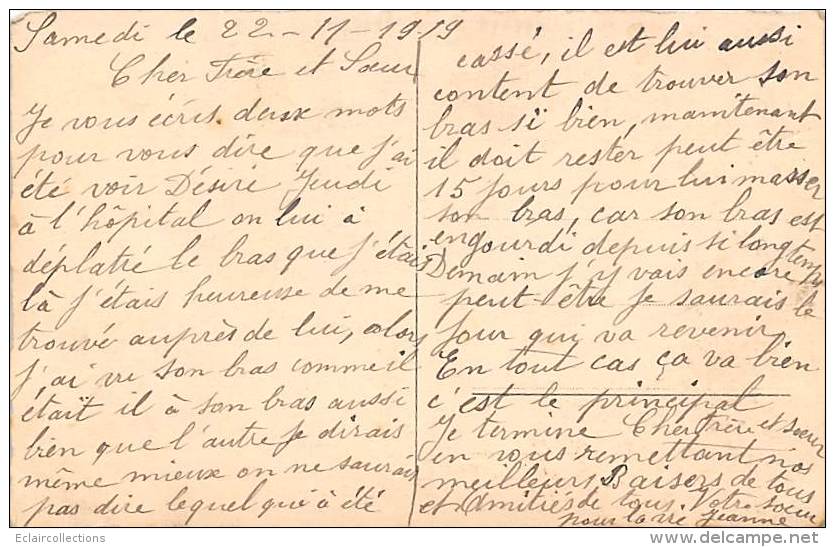 Samedi le 22-11-1919
Cher Frère et Sœur
Je vous écris deux mots
pour vous dire que j'ai
été voir Désiré Jeudi
à l'hôpital on lui à
déplatré le bras que j'étais
là j'étais heureuse de me
trouvé auprès de lui, alors
j'ai vu son bras comme il
étaït il à son bras aussi
bien que l'autre je dirais
même mieux on ne saurais
pas dire lequel qu'à été
cassé, il est lui aussi
content de trouver son
bras si bien, maintenant
il doit rester peut être
15 jours pour lui masser
son bras, car son bras est
engourdi depuis si longtemps
Demain j'y vais encore
peut-être je saurais le
jour qui va revenir
En tout cas ça va bien
c'est le principal
Je termine Cher Frère et sœur
en vous remettant nos
meilleurs Baisers de tous
et Amitiés de tous Votre sœur
pour la vie Jeanne
Eclaircollections
www.delcampe.net